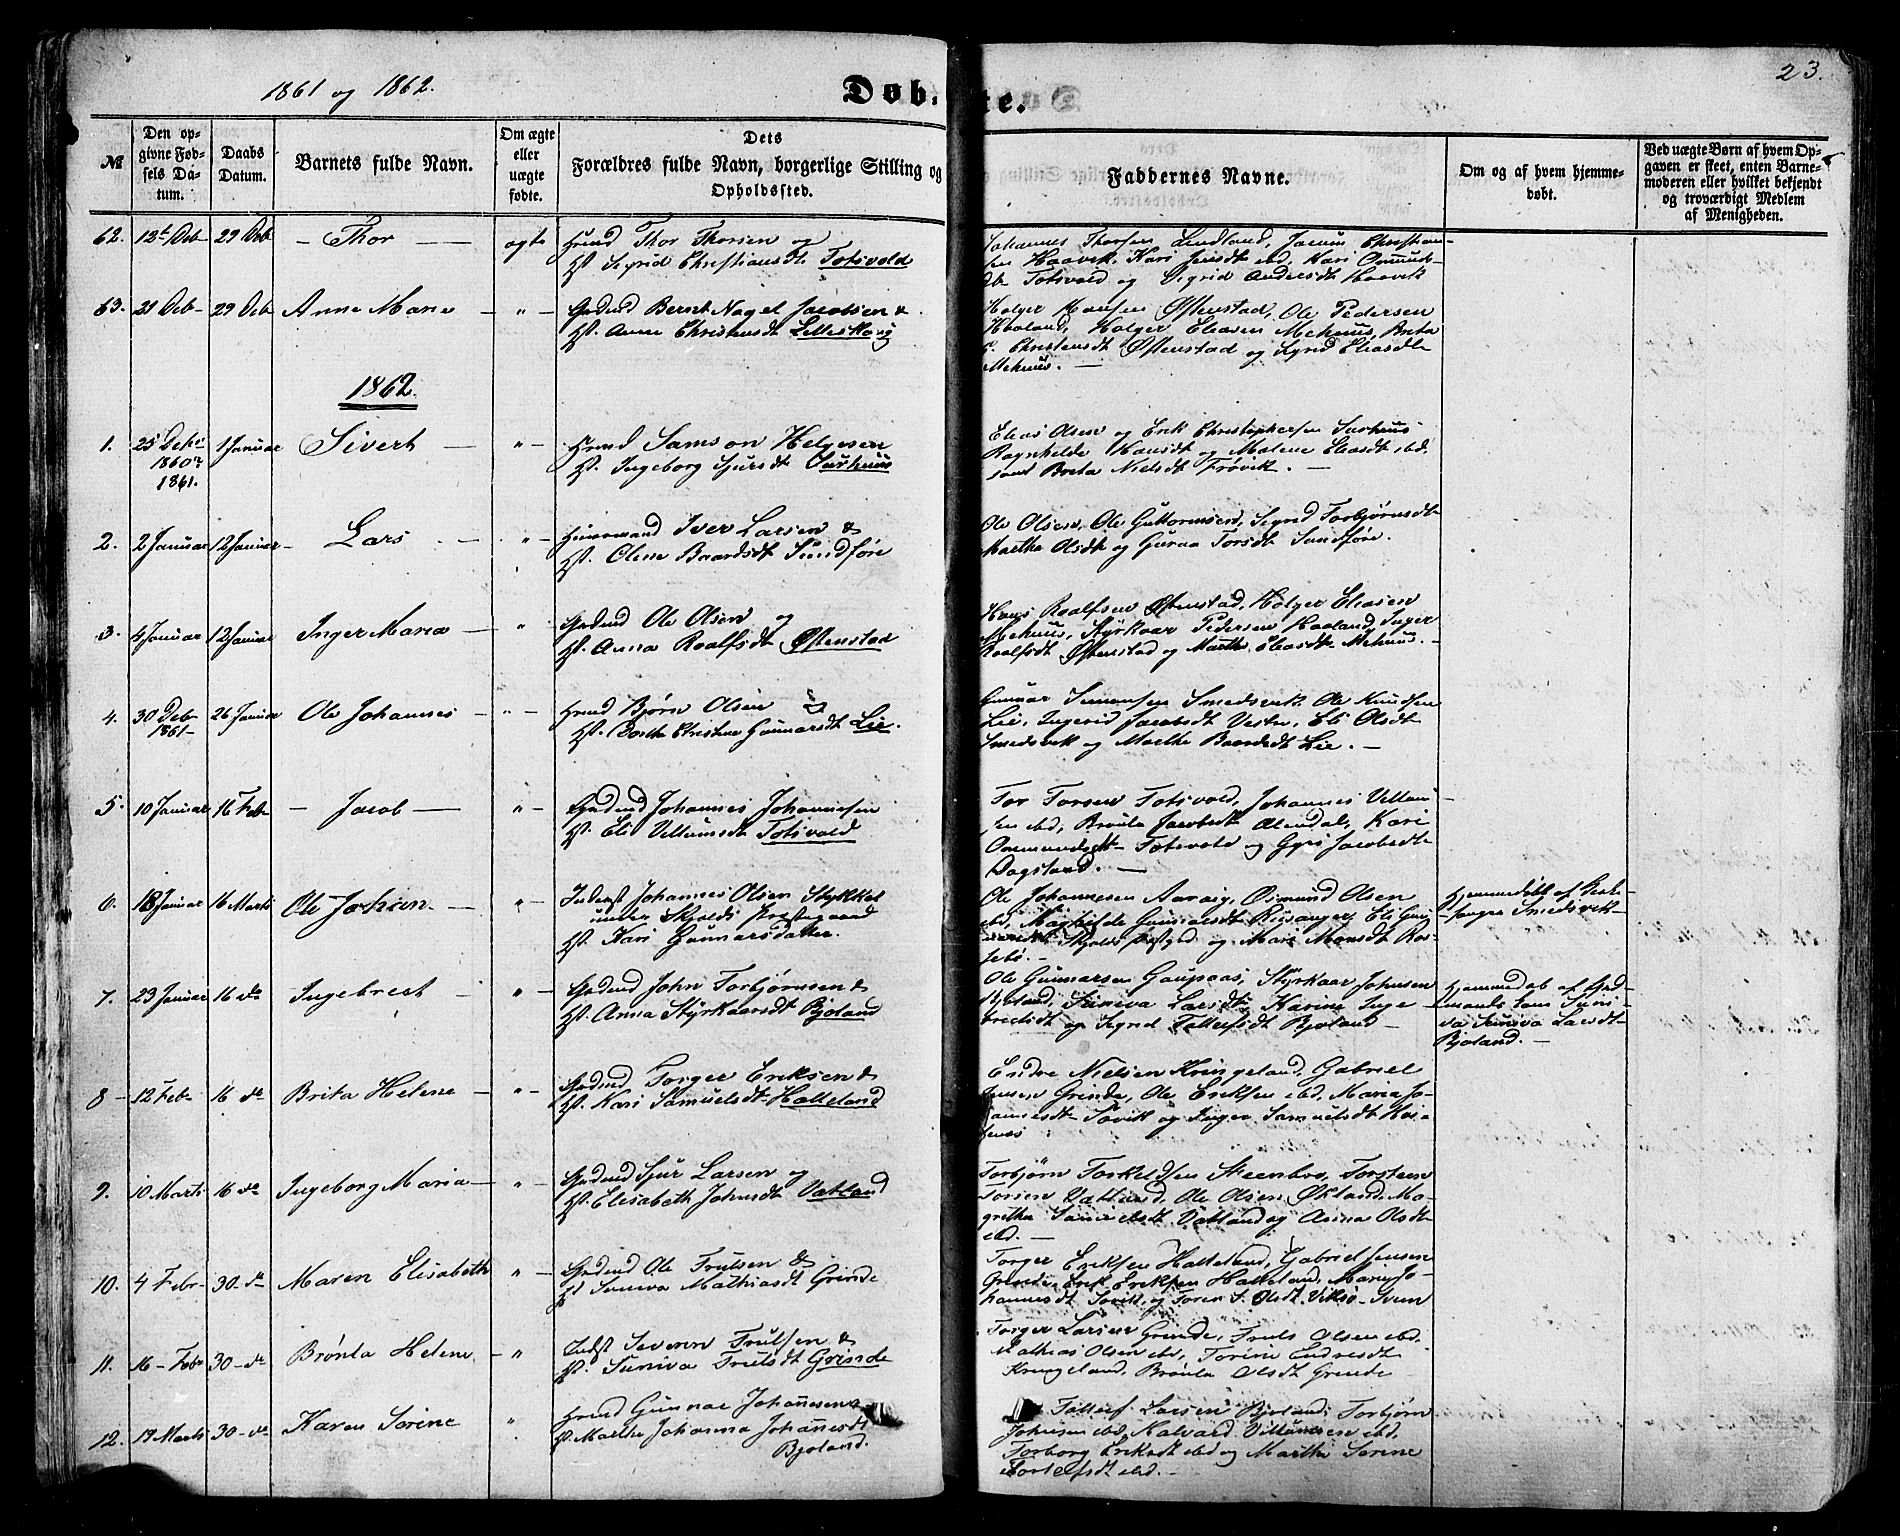 1861 og 1862.
Døb-te.
23.
№
Den op-
givne Fød-
sels Da-
tum.
Daabs
Datum.
Barnets fulde Navn.
Om ægte
eller
uægte
fødte.
Dets
Forældres fulde Navn, borgerlige Stilling og
Opholdssted.
Faddernes Navne.
Om og af hvem hjemme-
døbt.
Ved uægte Børn af hvem Op-
gaven er skeet, enten Barne-
moderen eller hvilket bekjendt
og troværdigt Medlem
af Menigheden.
62. 12t Deb 29 Deb - Thor - ægte Hmd Thor Thorsen og
Hst. Sigrid Christiansdt Totsvold
Johannes Thorsen Lindland, Christian-
sen Haavik, Kari ibd, Kari Osmunds-
dt Totsvold og Sigrid Andersdt Haavik
63. 21 Deb 29 Deb Anne Marie " Grdmd Bernt Nagel Jacobsen &
Hst. Anne Christensdt Lilleskog
Holger Hansen Østenstad, Ole Pedersen
Haaland, Holger Eliasen Mehuus, Brita
Christensdt Østenstad og Syrid Eliasdtr
Mehuus. -
1862.
1. 25 Debr 1 Januar Sivert - " - Hmd Samson Helgesen
1860 &
1861.
Hst. Ingeborg Sjursdt Aarhuus
Elias Olsen og Erik Christophersen Aarhuus
Ragnhilde Hansdt og Malene Eliasdt ibd.
samt Brita Nielsdt Frøvik. -
2. 2 Januar 12 Januar - Lars - " - Huusmand Iver Larsen &
Hst. Oline Baardsdt Sundføre
Ole Olsen, Ole Guttormsen, Sigrid Torbjørnsdt
Martha Olsdt og Guroa Torsdt Sundføre.
3. 4 Januar 12 Januar Inger Maria - " Grdmd Ole Olsen og
Hst. Anna Roalfsdt Østenstad
Hans Roalfsen Østenstad, Holger Eliasen
Mehuus, Styrkaar Pedersen Haaland, Inger
Roalfsdt Østenstad og Marthe Eliasdt Mehuus. -
4. 30 Deb 26 Januar Ole Johannes - " - Hmd Bjørn Olsen &
1861-
Hst. Dorthe Christine Gunnarsdt Lie.
Gunnar Simonsen Smedsvik, Ole Knudsen
Lie, Ingerid Jacobsdt Vestre, Eli Olsdt
Smedsvik og Marthe Baardsdt Lie. -
5. 10 Januar 16 Feb - Jacob - " - Grdmd Johannes Johannesen
Hst. Eli Villumsdt Totsvold
Tor Torsen Totsvold, Johannes Villum-
sen ibd, Brønla Jacobsdt Ølendal, Kari
Osmundsdt Totsvold og Gyri Jacobsdt
Dagsland. -
6. 18 Januar 16 Marts Ole Johan - " - Inderst Johannes Olsen Stykket
under Skjolds Præstegaard
Hst. Kari Gunnarsdatter.
Ole Johannesen Aarvig, Osmund Olsen
ibd, Maghilde Gunnarsdt Risanger, Eli Gun-
narsdt Skjolds præstgrd og Mari Monsdt Ros-
sebø. -
Hjemmedøbt af
Smedsvik -
7. 23 Januar 16 do Ingebret - " - Grdmd John Torbjørnsen &
Hst. Anna Styrkaarsdt Bjoland
Ole Gunnarsen Gaupaas, Styrkaar Johnsen
Bjoland, Suniva Larsdt, Karine Inge-
bretsdt og Sigrid Tollefsdt Bjoland -
Hjemmedøb af Grd-
mands
Suniva Larsdt-
Bjoland. -
8 - 12 Feb 16 do Brita Helene - " - Grdmd Torger Eriksen &
Hst. Kari Samuelsdt Halleland
Endre Nielsen Kringeland, Gabriel
Jensen Grinde, Ole Eriksen ibd, Maria Jo-
hannesdt Søvik og Inger Samuelsdt
9. 10 Marts 16 do Ingeborg Maria - " - Grdmd Sjur Larsen og
Hst. Elisabeth Johnsdt Vatland
Torbjørn Torkildsen Steenbro, Torsten
Torsen Vatland, Ole Olsen Økland, Ma-
gritha Samuelsdt Vatland og Anna Olsdt
ibd. -
10. 4 Febr - 30 - do Maren Elisabeth " - Grdmd Ole Frulsen &
Hst Suniva Mathiasdt Grinde
Torger Eriksen Halleland, Gabriel Jensen
Grinde, Erik Eriksen Halleland, Marie Jo-
hannesdt Søvik, og Toren S. Olsdt
11. 16 - Feb 30 - do Brønla Helene - " Indst Severin Frulsen &
Hst. Suniva Frulsdt Grinde
Torger Larsen Grinde, Fruls Olsen ibd.
Mathias Olsen ibd, Torine Endresdt
Kringeland, Brønla Olsdt Grinde
12. 19 Marts 30 - do Karen Sørine " Hmd Gunnar Johannesen &
Hst. Marthe Johanna Johannesdt
Bjoland.
Tollef Larsen Bjoland, Torbjørn
Johnsen ibd, Halvard Villumsen ibd.
Torborg Eriksdt ibd og Martha Sørine
Tollefsdt ibd. -